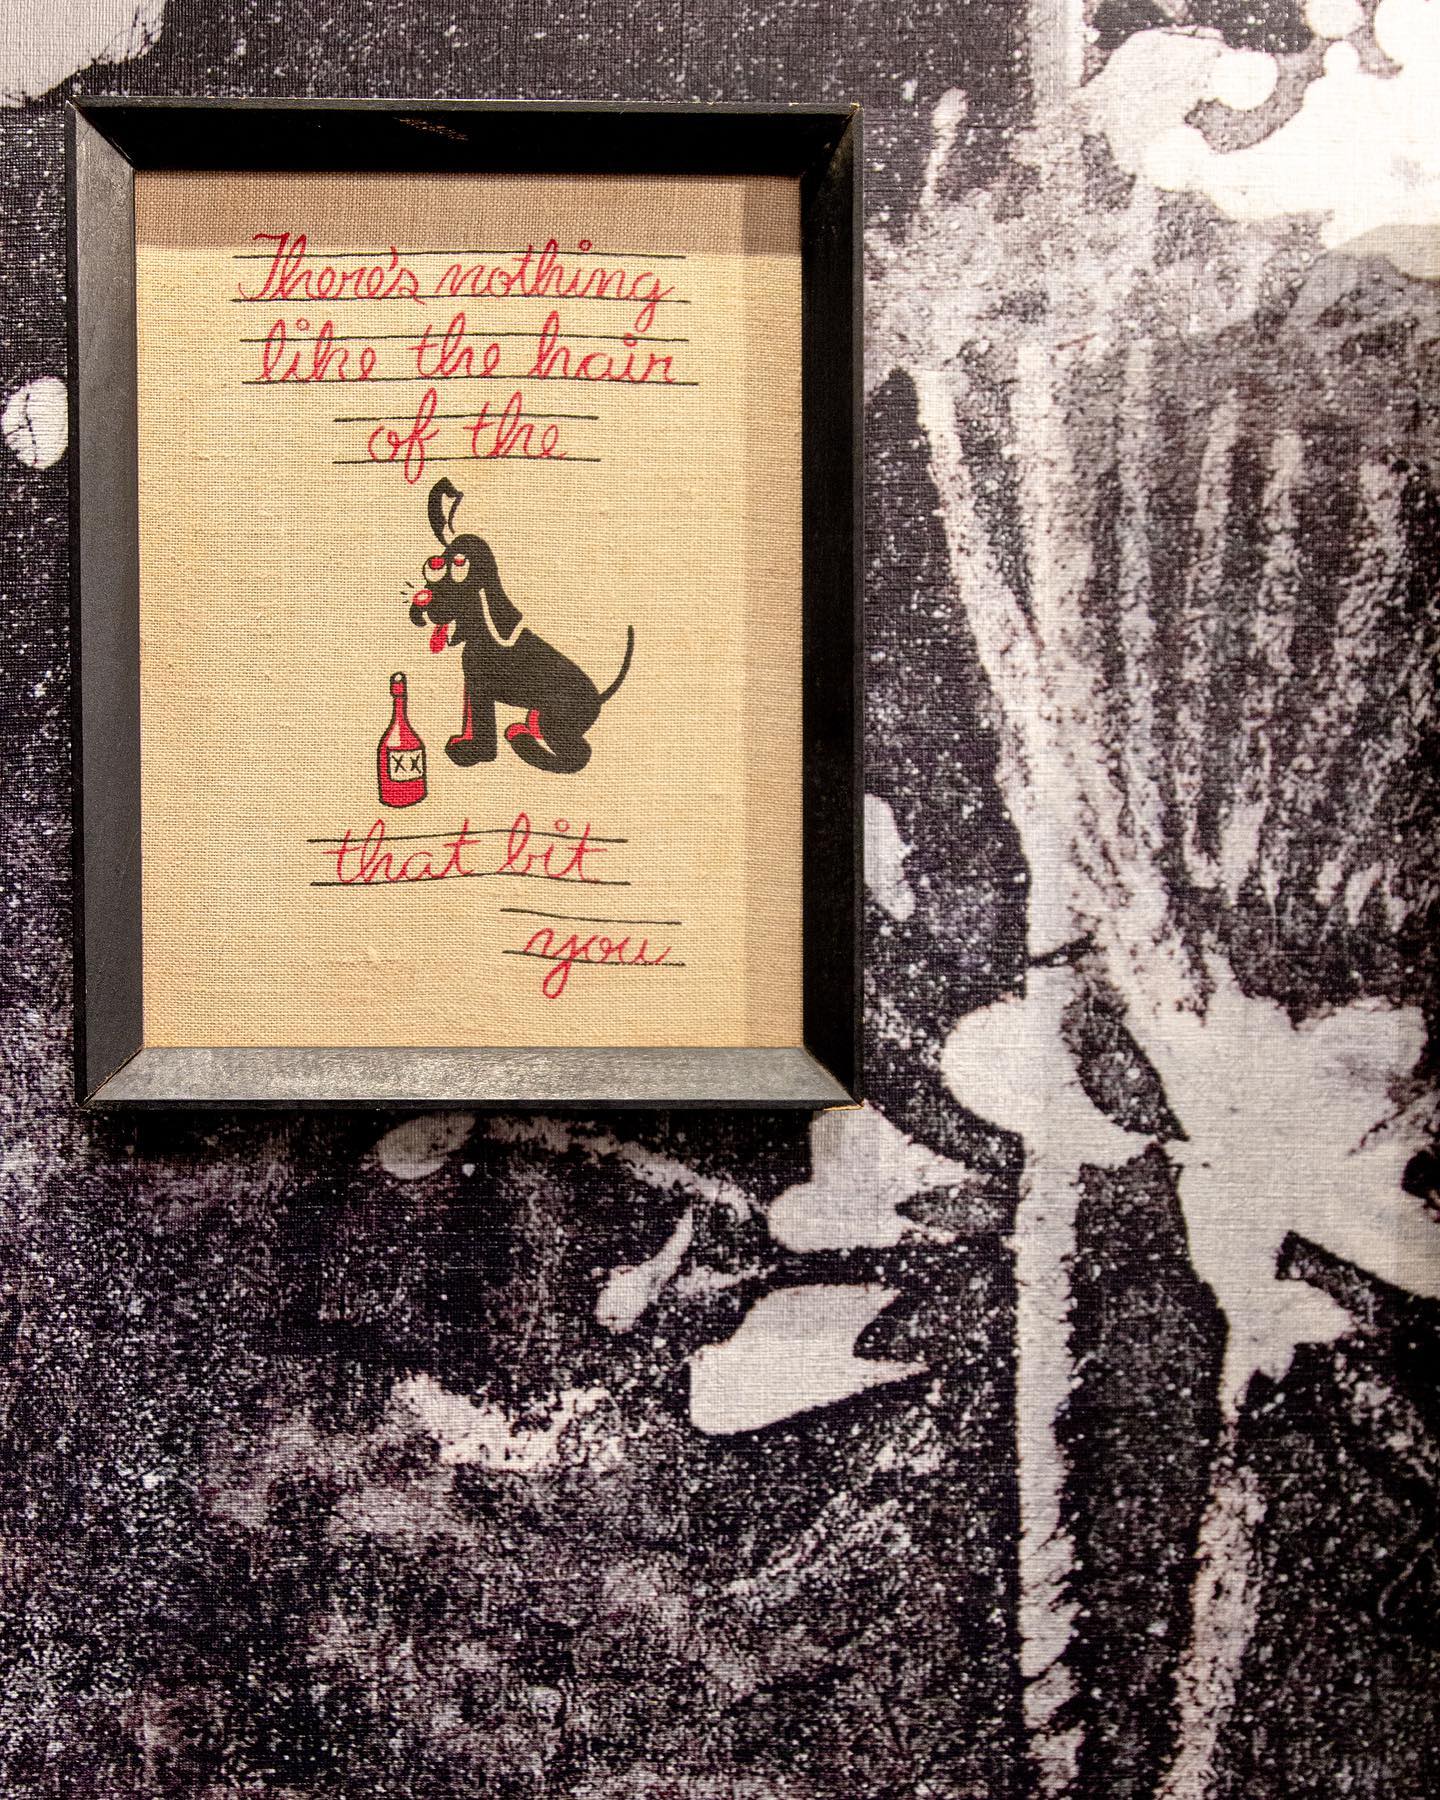 There's nothing
like the hair
of the
XX
that bit
you